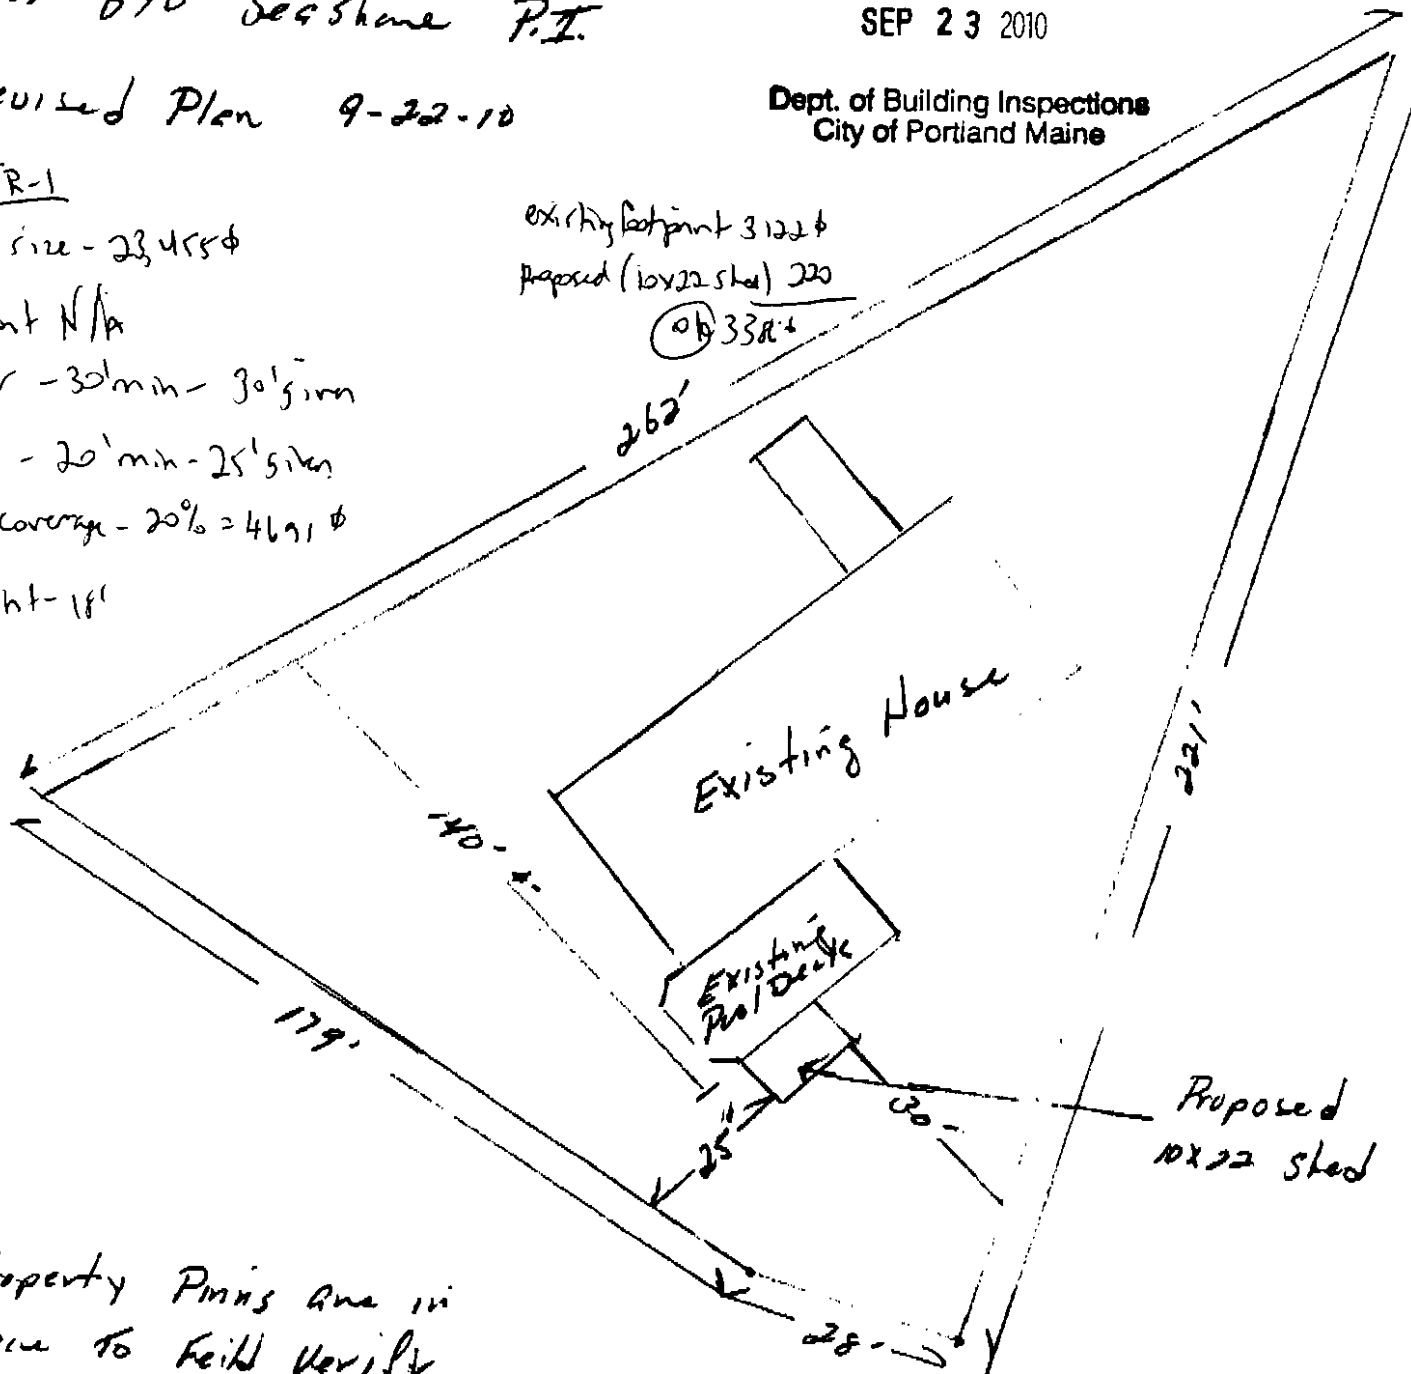 Seashore P.I.
SEP 2 3 2010
Plan 9-22-10
Dept. of Building Inspections
City of Portland Maine
R-1
size - 23,455ϕ
N/A
- 30' min - 30' given
- 20' min - 25' given
coverage - 20% = 4691 ϕ
- 18'
existing footprint 3122ϕ
proposed (10x22 shed) 220
ok
262'
Existing House
221'
140'
Existing
Pool Deck
179'
25'
30'
Proposed
10x22 shed
28'
Pinns are in
To Feild Verify